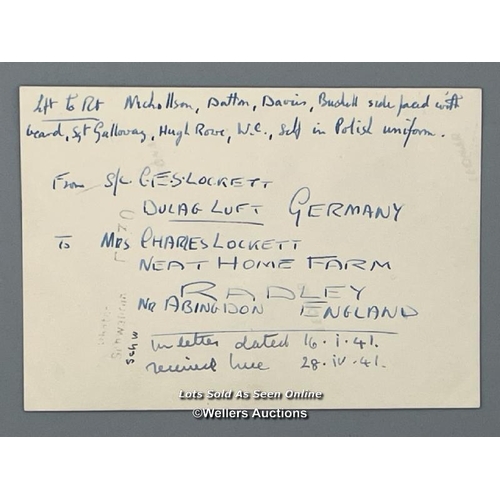 Lft to Rt Nichollson, Datton, Davies, Bushell side faced with
beard, Sgt Galloway, Hugh Rowe, W.C., Self in Polish uniform.
From S/L C.E.S. LOCKETT
DULAG LUFT GERMANY
To MRS CHARLES LOCKETT
NEAT HOME FARM
RADLEY
NR ABINGDON ENGLAND
In letter dated 16.i.41.
received here 28.iv.41.
Schw
Lots Sold As Seen Online
©Wellers Auctions